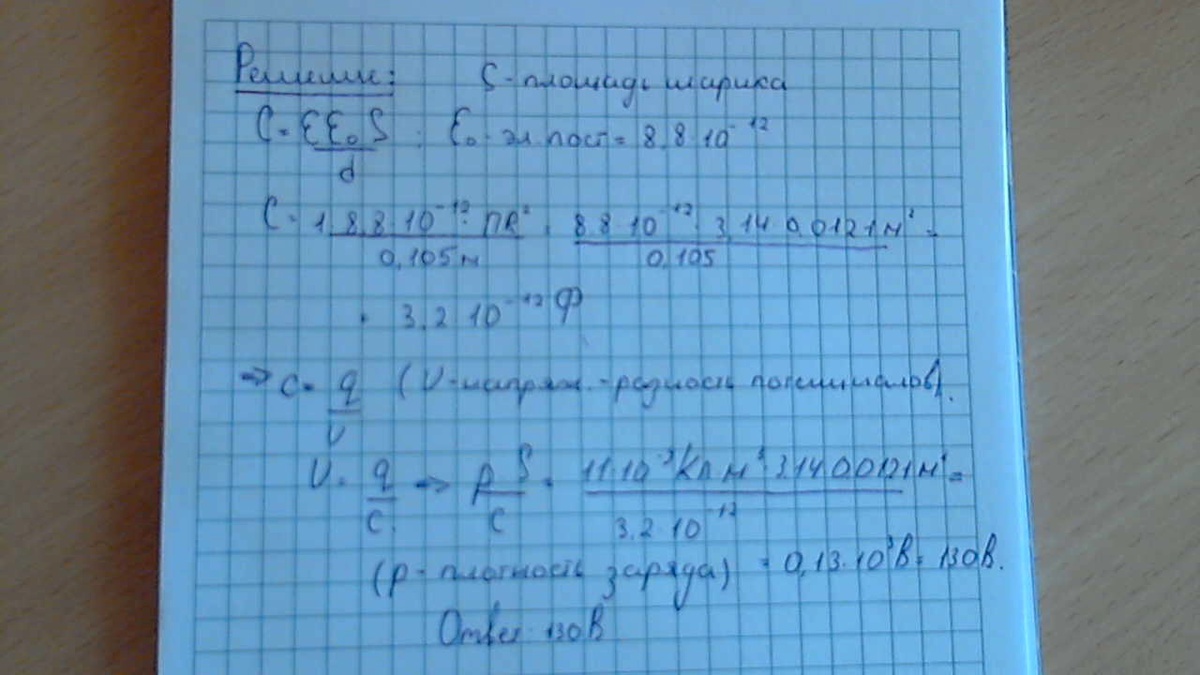 Решение: S - площадь шарика
C = εε₀S : ε₀ - эл. пост = 8,8·10⁻¹²
d
C = 1·8,8·10⁻¹²·ПR² = 8,8·10⁻¹²·3,14·0,0121м² =
0,105м 0,105
= 3,2·10⁻¹² Ф
=> C = q (U - напряж. - разность потенциалов).
U
U = q => ρS = 11·10⁻³Кл м² 3,14·0,0121м² =
C. C 3,2·10⁻¹²
(ρ - плотность заряда) = 0,13·10³В = 130В.
Ответ 130В